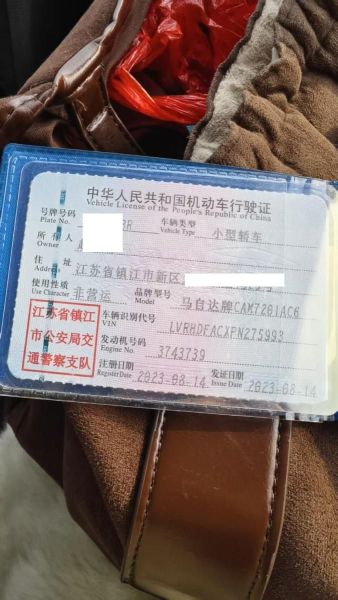 中华人民共和国机动车行驶证
Vehicle License of the People's Republic of China
号牌号码 车辆类型 小型轿车
Plate No. Vehicle Type
所有人
Owner
住址 江苏省镇江市新区
Address
使用性质 非营运 品牌型号 马自达牌CAM7201AC6
Use Character Model
江苏省镇江
市公安局交
通警察支队
车辆识别代号 LVRHDFACXPN275993
VIN
发动机号码 3743739
Engine No.
注册日期 2023-08-14 发证日期 2023-08-14
Register Date Issue Date